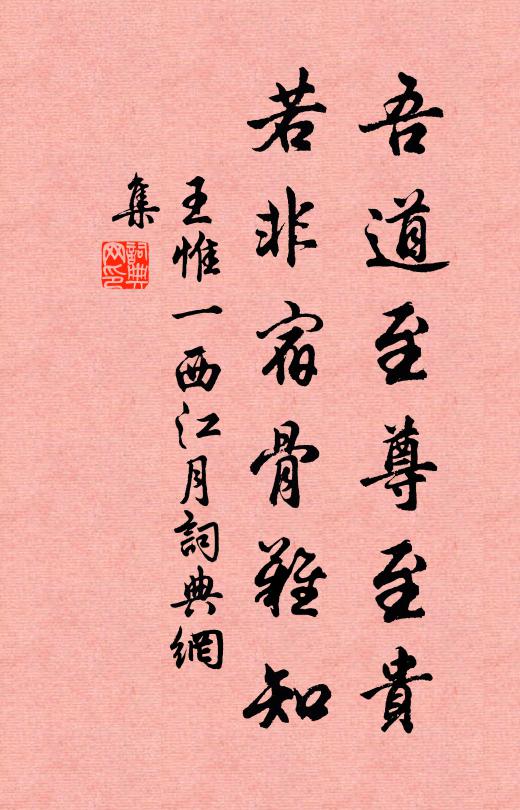 吾道至尊至貴
若非宿骨難知
王惟一西江月詞典網
集
詞典
网印